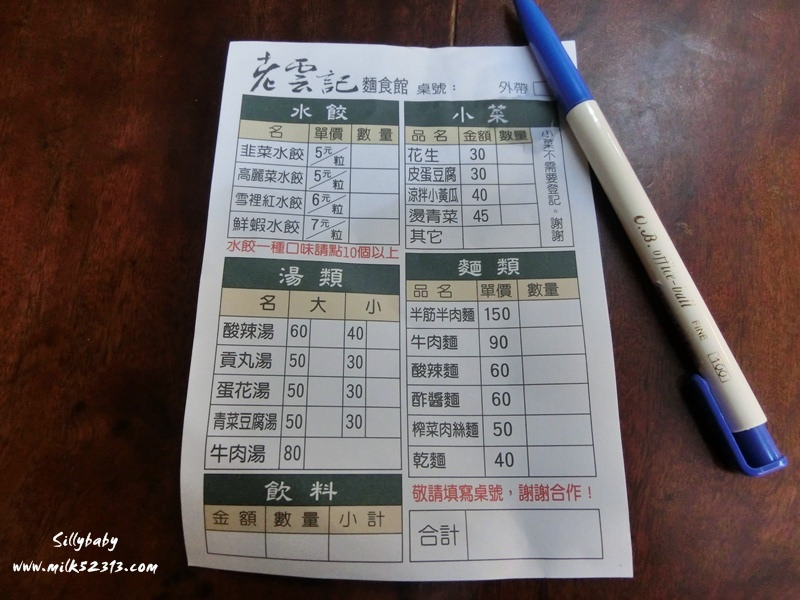 老雲記 麵食館 桌號： 外帶
水餃
名 單價 數量
韭菜水餃 5元/粒
高麗菜水餃 5元/粒
雪裡紅水餃 6元/粒
鮮蝦水餃 7元/粒
水餃一種口味請點10個以上
小菜
品名 金額 數量
花生 30
皮蛋豆腐 30
涼拌小黃瓜 40
燙青菜 45
其它
小菜不需要登記。謝謝
湯類
名 大 小
酸辣湯 60 40
貢丸湯 50 30
蛋花湯 50 30
青菜豆腐湯 50 30
牛肉湯 80
麵類
品名 單價 數量
半筋半肉麵 150
牛肉麵 90
酸辣麵 60
酢醬麵 60
榨菜肉絲麵 50
乾麵 40
敬請填寫桌號，謝謝合作！
飲料
金額 數量 小計
合計
O.B. office-ball FINE [100]
Sillybaby
www.milk52313.com